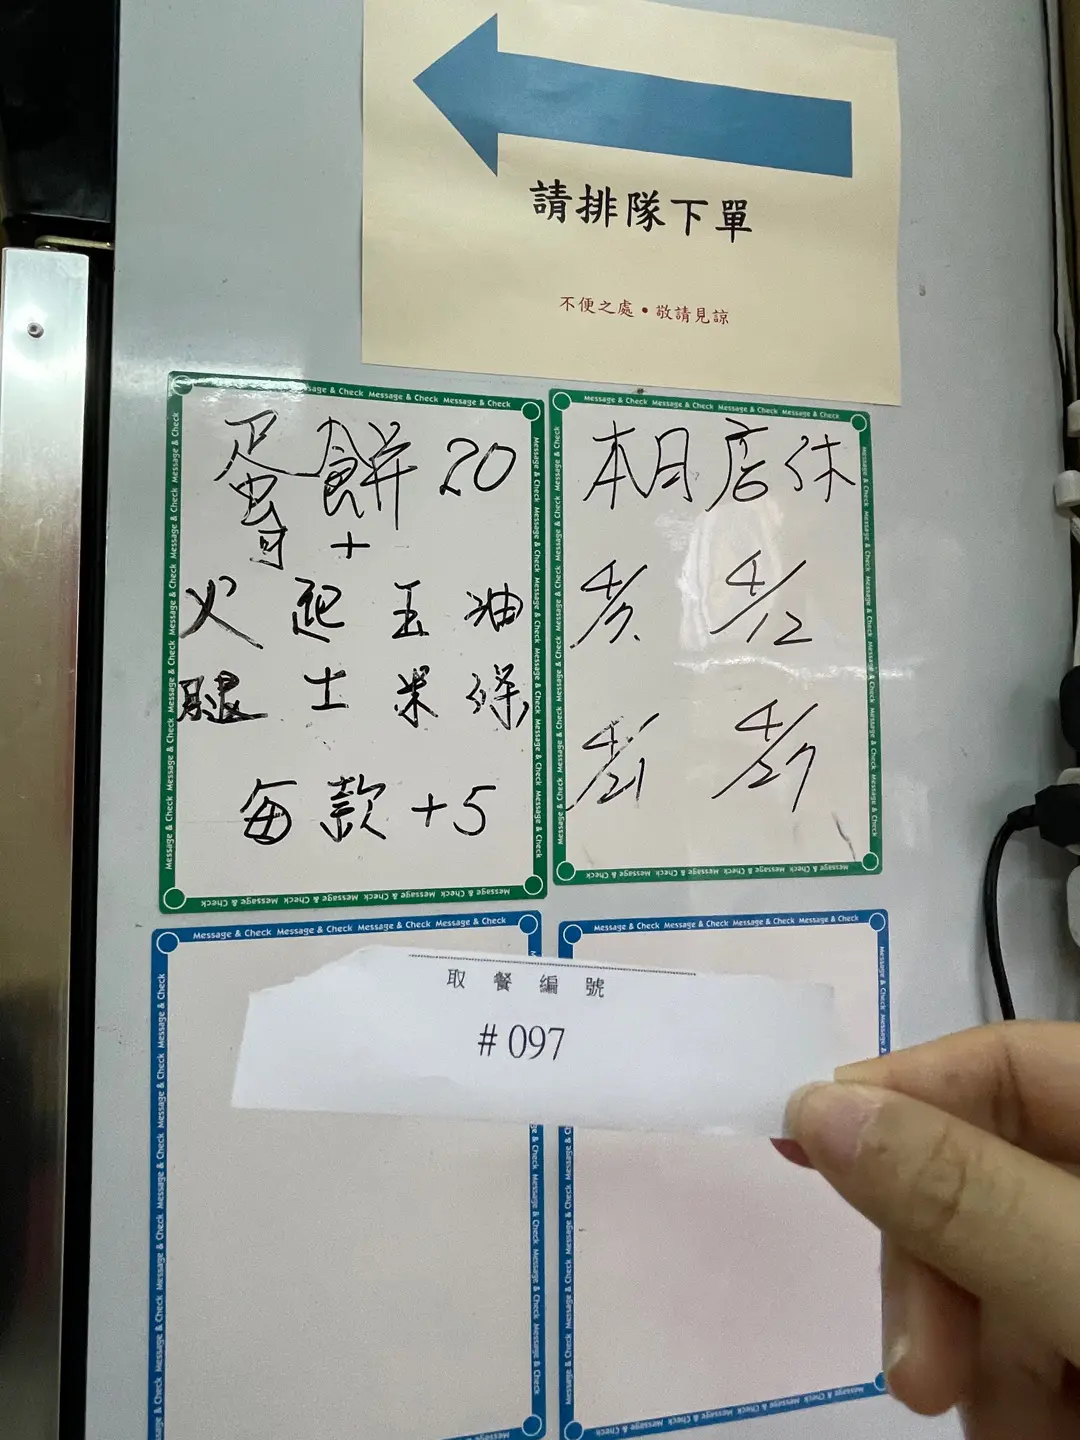 請排隊下單
不便之處•敬請見諒
Message & Check Message & Check Message & Check
蛋餅20
可+
火 起 玉 油
腿 士 米 條
每款+5
Message & Check Message & Check Message & Check Message & Check
本月店休
4/7. 4/12
4/21 4/27
Message & Check Message & Check Message & Check Message & Check
Message & Check Message & Check Message & Check Message & Check
取餐編號
#097